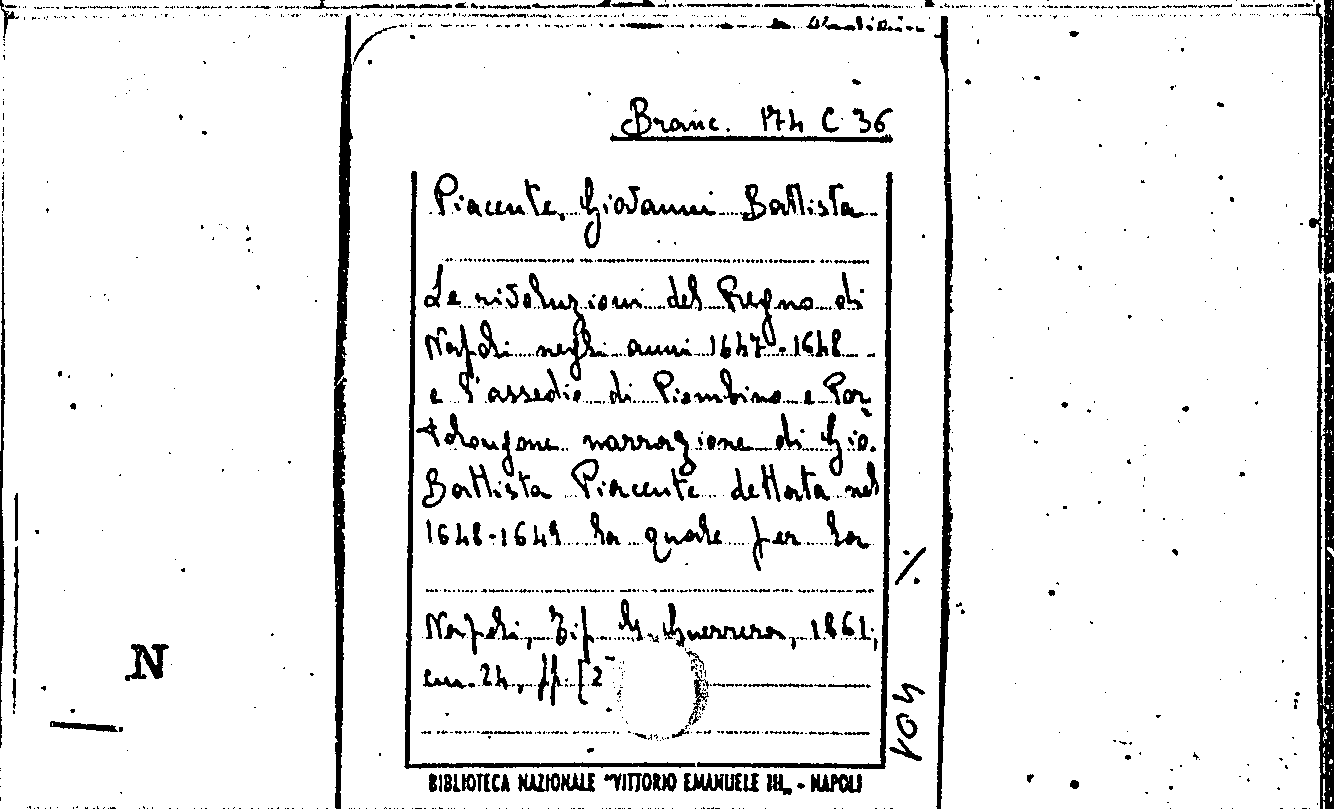 Branc. 174 C 36
Piacente, Giovanni Battista
Le rivoluzioni del Regno di
Napoli negli anni 1647-1648
e l'assedio di Piombino e Por
tolongone narrazione di Gio.
Battista Piacente dettata nel
1648-1649 la quale per la
Napoli, Tip. G. Guerrera, 1861,
cm. 24, pp. [2
N
%
104
BIBLIOTECA NAZIONALE "VITTORIO EMANUELE III„ - NAPOLI